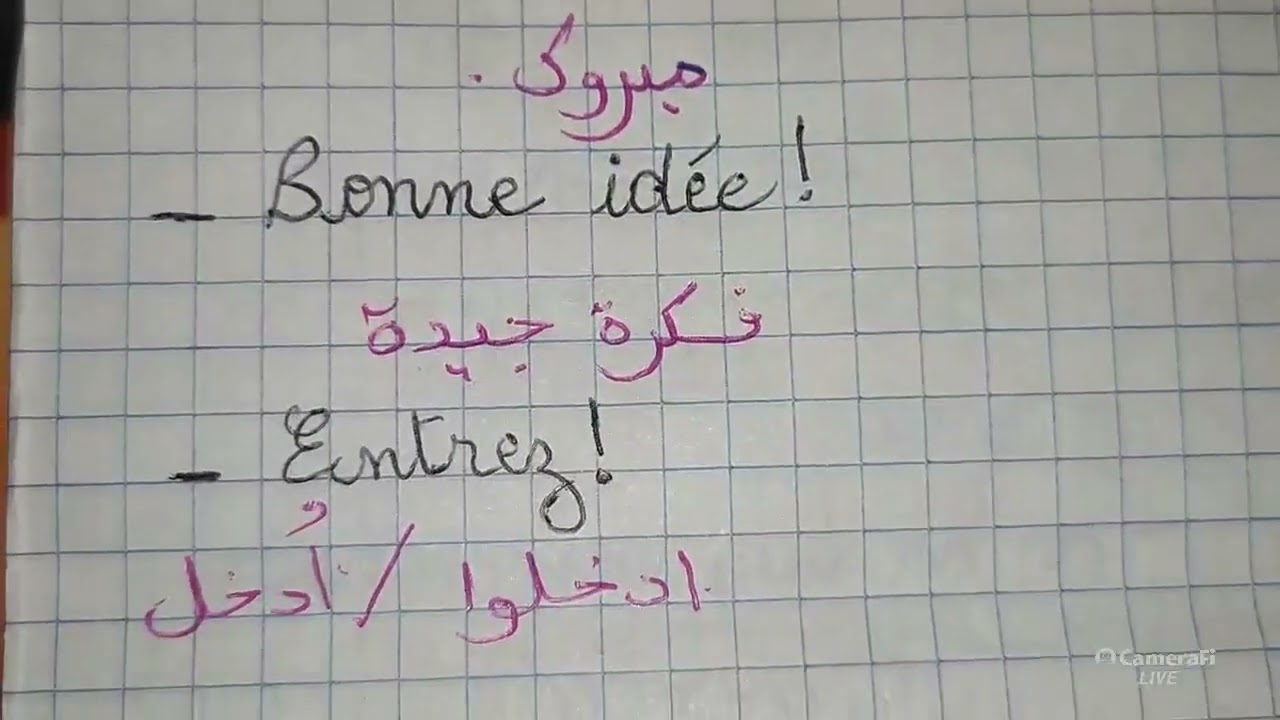 مبروك.
- Bonne idée!
فكرة جيدة
- Entrez!
ادخلوا / أُدخل
CameraFi
LIVE